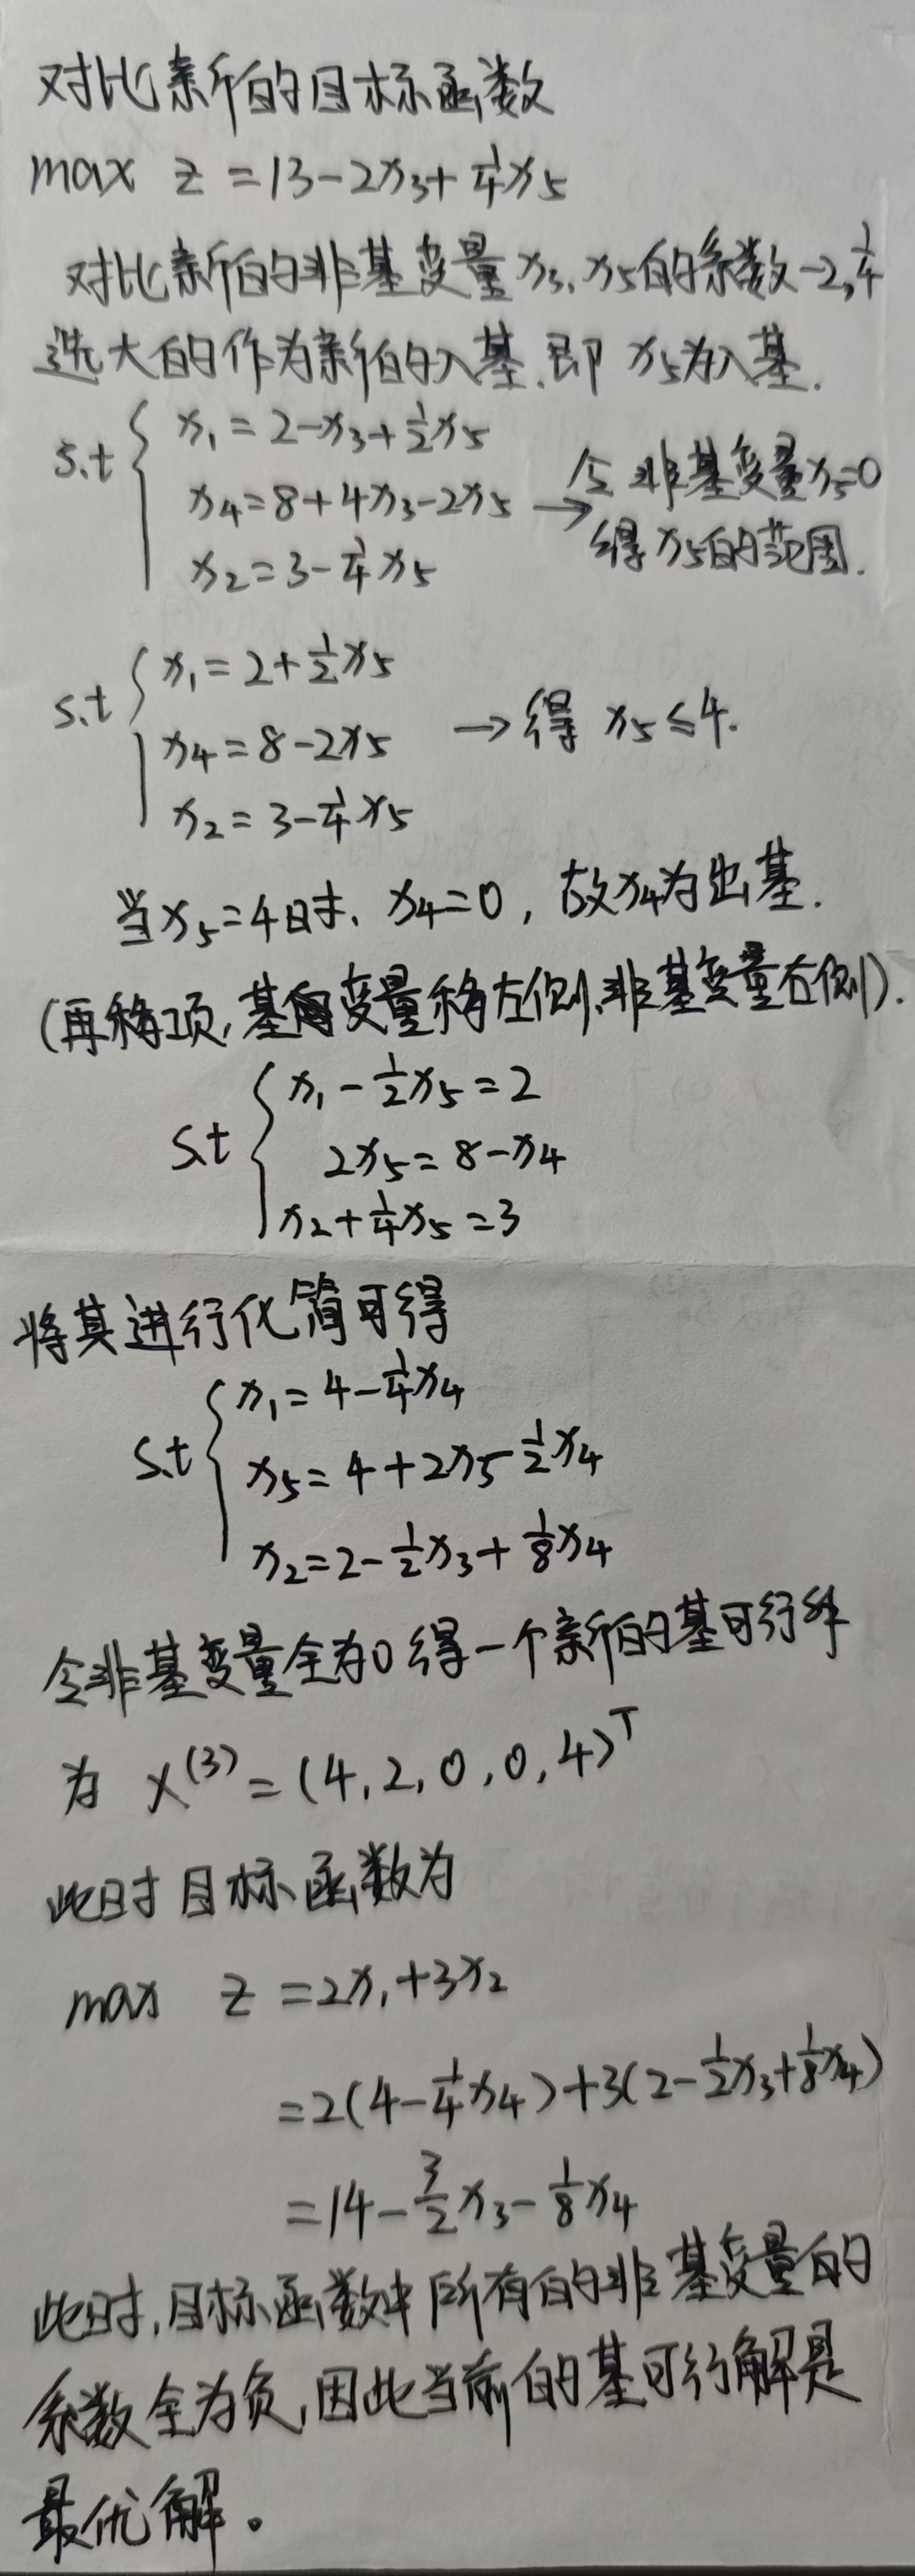 对比新的目标函数
max z = 13-2x₃+¼x₅
对比新的非基变量x₃、x₅的系数-2,¼
选大的作为新的入基.即 x₅为入基.
s.t { x₁=2-x₃+½x₅
x₄=8+4x₃-2x₅ → 令非基变量x₅=0
x₂=3-¼x₅ 得x₅的范围.
s.t { x₁=2+½x₅
x₄=8-2x₅ → 得 x₅≤4.
x₂=3-¼x₅
当x₅=4时、x₄=0，故x₄为出基.
(再移项,基变量移左侧、非基变量右侧).
s.t { x₁-½x₅=2
2x₅=8-x₄
x₂+¼x₅=3
将其进行化简可得
s.t { x₁=4-¼x₄
x₅=4+2x₅-½x₄
x₂=2-½x₃+⅛x₄
令非基变量全为0得一个新的基可行解
为 X⁽³⁾=(4,2,0,0,4)ᵀ
此时目标函数为
max z =2x₁+3x₂
=2(4-¼x₄)+3(2-½x₃+⅛x₄)
=14-3/2x₃-⅛x₄
此时,目标函数中所有的非基变量的
系数全为负,因此当前的基可行解是
最优解。